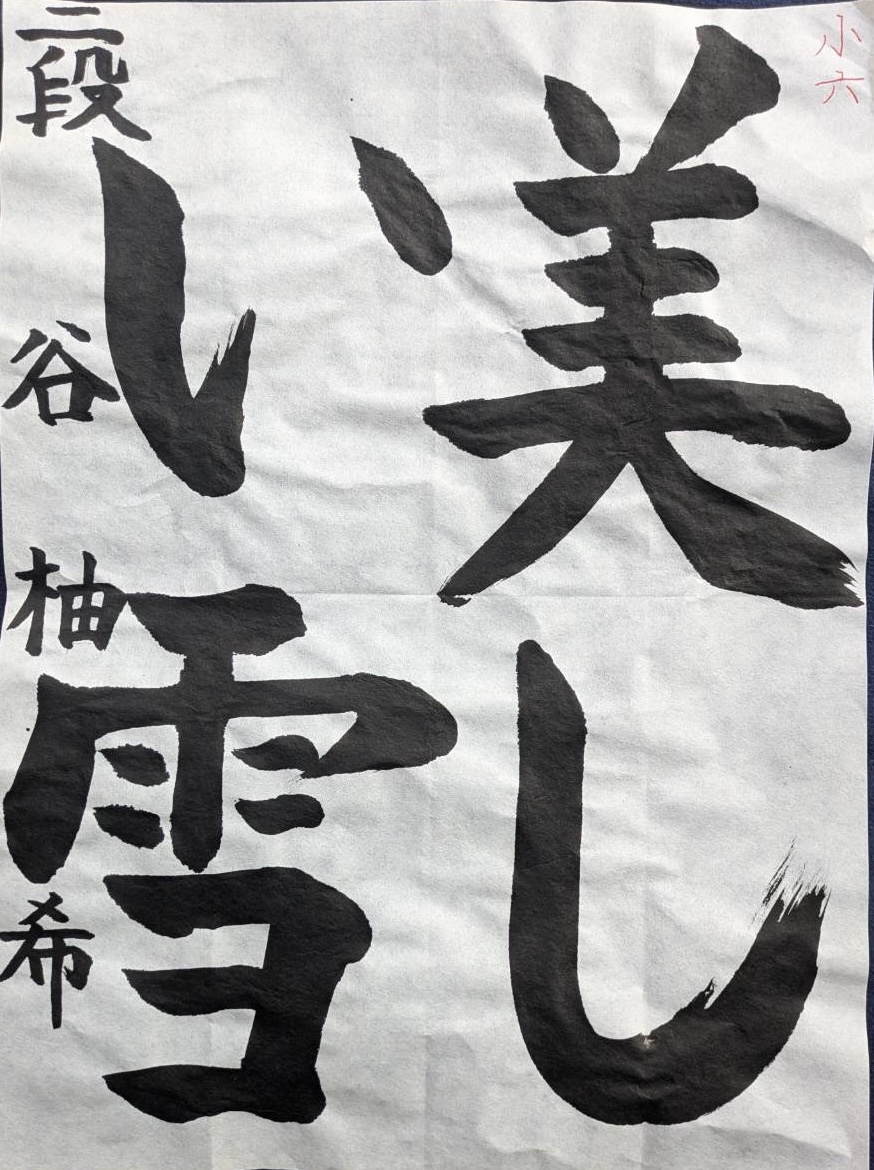 小六
美し
い雪
二段 谷 柚希